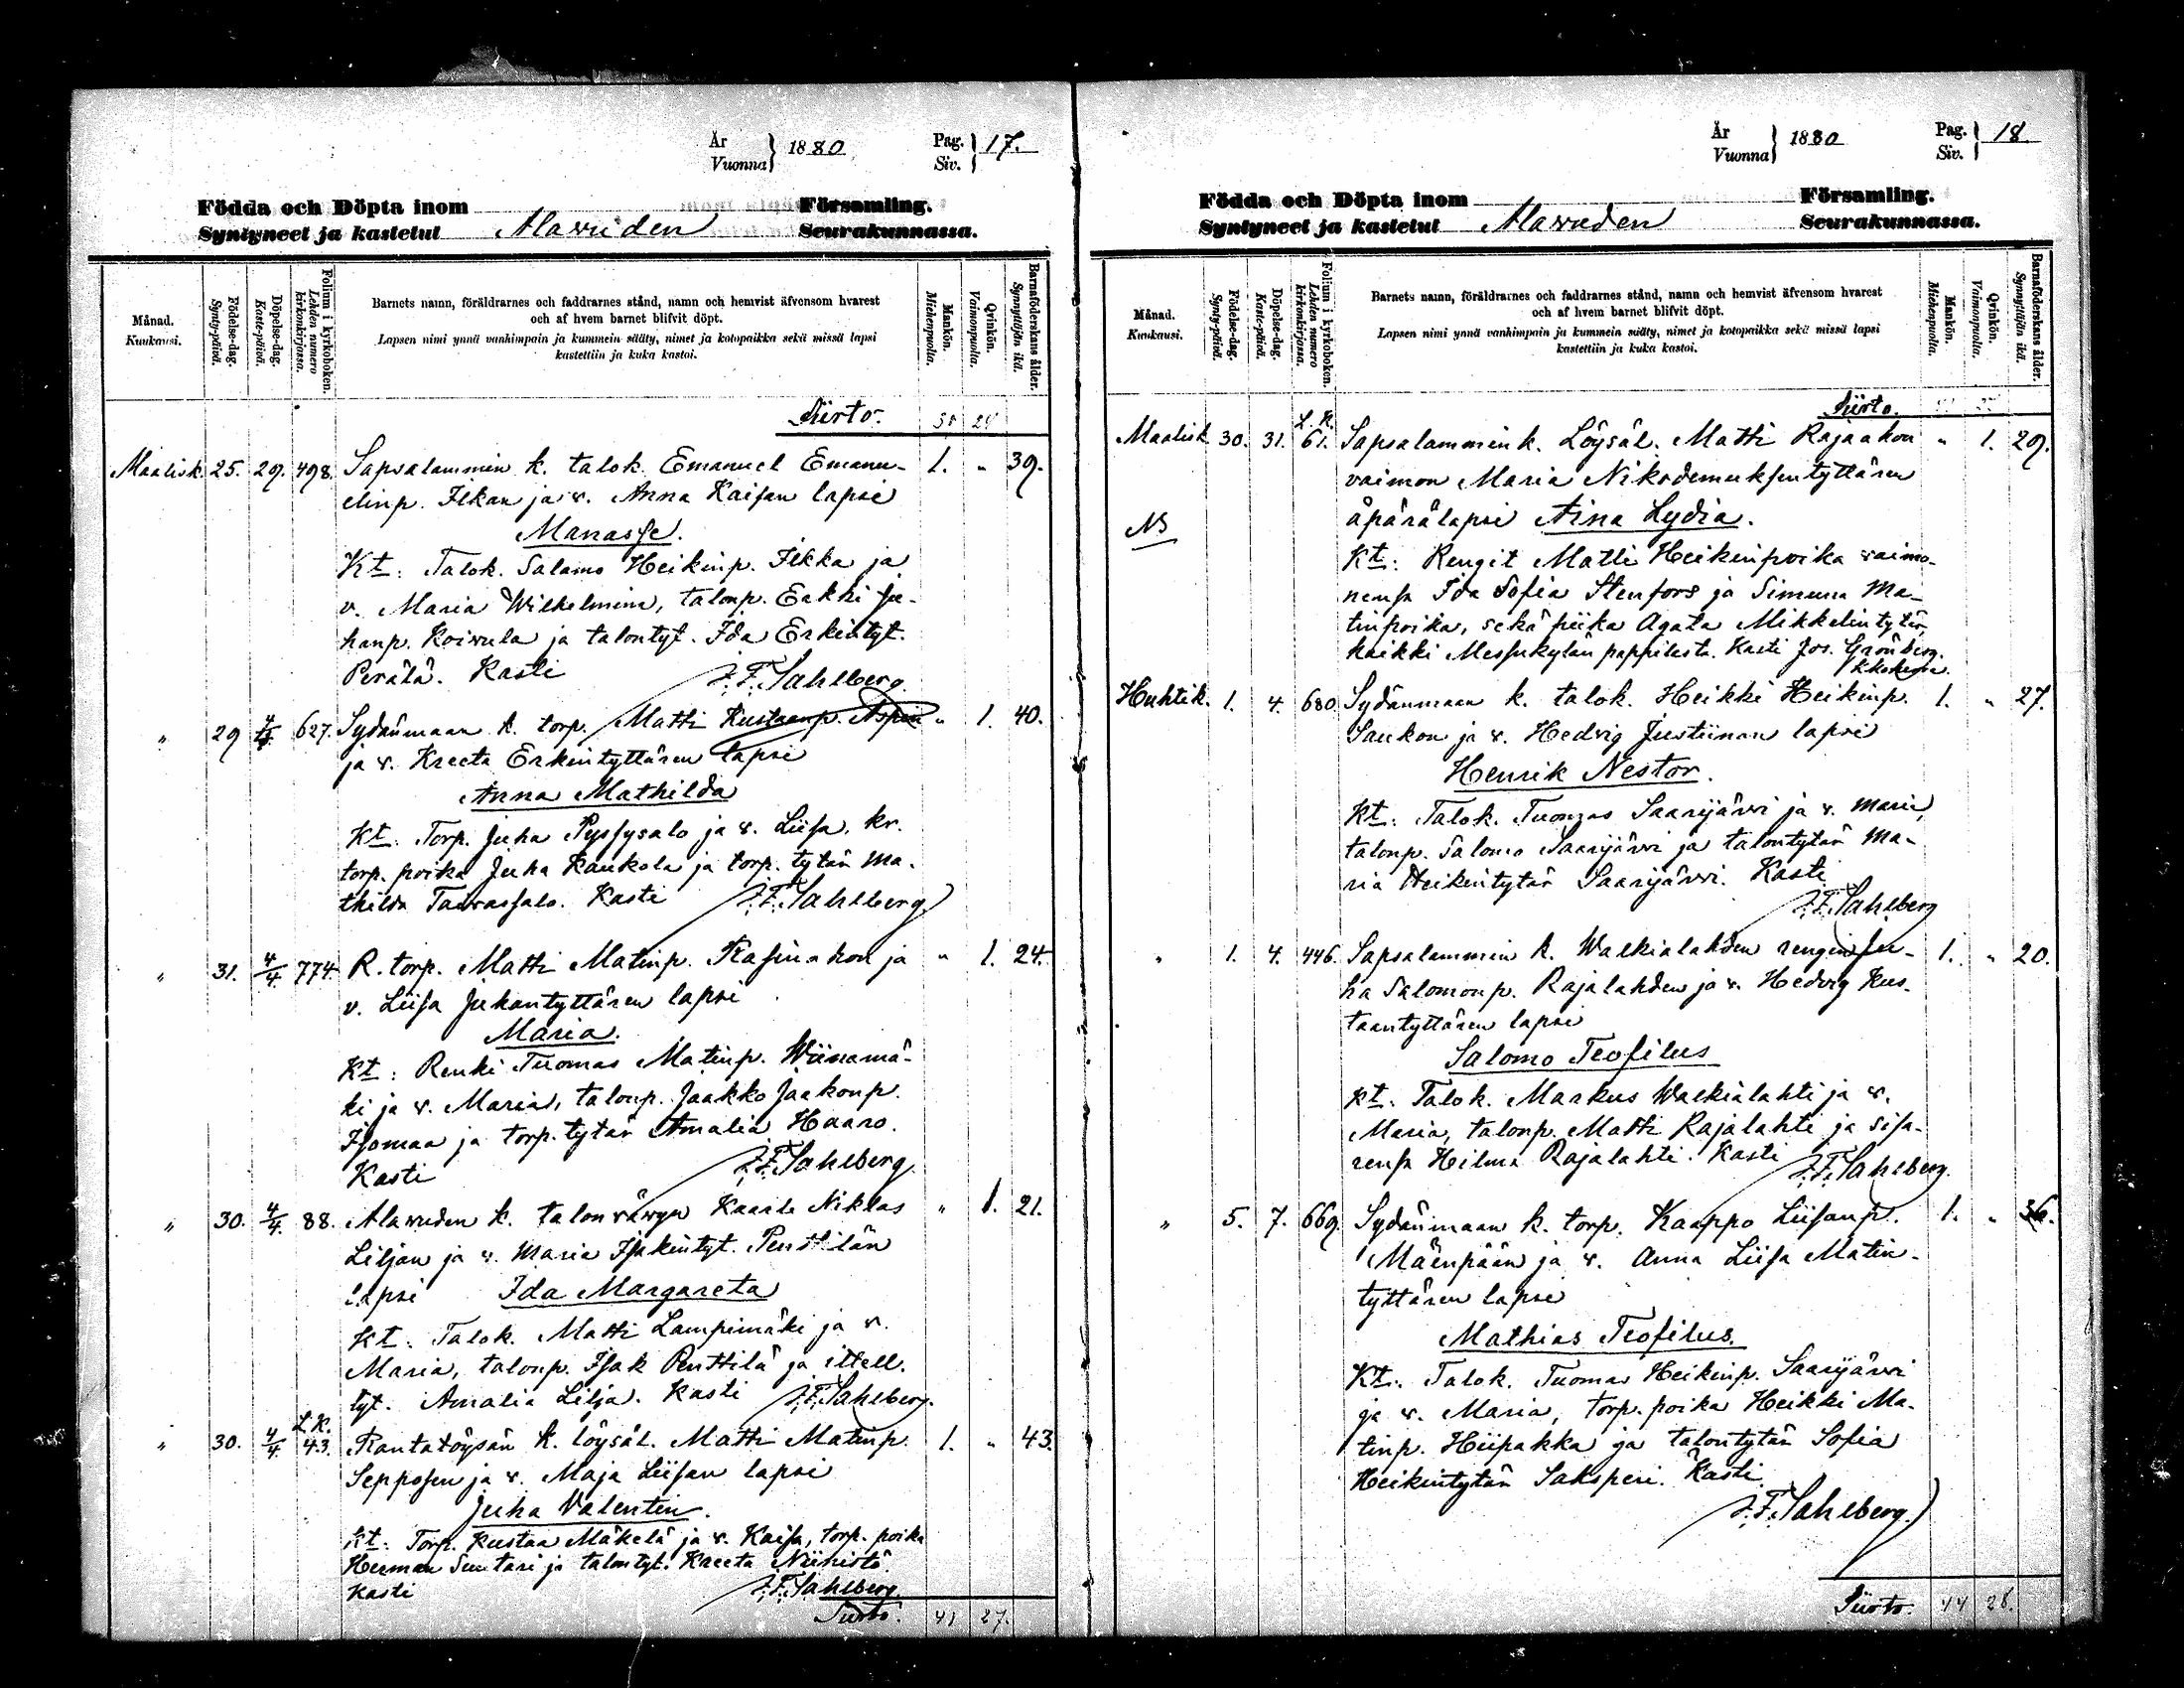 År
Vuonna
1880
Pag.
Siv.
17.
Födda och Döpta inom Församling.
Syntyneet ja kastetut Alavuden Seurakunnassa.
Månad.
Kuukausi.
Födelse-dag.
Synty-päivä.
Döpelse-dag.
Kaste-päivä.
Folium i kyrkoboken.
Lehden numero kirkonkirjassa.
Barnets namn, föräldrarnes och faddrarnes stånd, namn och hemvist äfvensom hvarest
och af hvem barnet blifvit döpt.
Lapsen nimi ynnä vanhimpain ja kummein sääty, nimet ja kotopaikka sekä missä lapsi
kastettiin ja kuka kastoi.
Mankön.
Miehenpuolta.
Qvinkön.
Vaimonpuolta.
Barnaföderskans ålder.
Synnyttäjän ikä.
Siirto.
Maalisk. 25. 29. 498. Sapsalammin k. talok. Emanuel Emanu- 1. „ 39.
elinp. Ilkan ja v. Anna Kaisan lapsi
Manasse.
Kt: Talok. Salamo Heikinp. Ilkka ja
v. Maria Wilhelmina, talonp. Erkki Ju-
hanp. Koivula ja talontyt. Ida Erkintyt.
Perälä. Kasti J.F. Sahlberg.
„ 29 627. Sydänmaan k. torp. Matti Kustaanp. „ 1. 40.
ja v. Kreeta Erkintyttären lapsi
Anna Mathilda
Kt: Torp. Juha Pyssysalo ja v. Liisa, kr.
torp. poika Juha Kaukola ja torp. tytär Ma-
thilda Taurassalo. Kasti J.F. Sahlberg
„ 31. 4/4. 774. R. torp. Matti Matinp. ja „ 1. 24.
v. Liisa Juhantyttären lapsi
Maria.
Kt: Renki Tuomas Matinp. Wiinamä-
ki ja v. Maria, talonp. Jaakko Jaakonp.
Isomaa ja torp. tytär Amalia Haaro.
Kasti J.F. Sahlberg
„ 30. 4/4. 88. Alavuden k. talonvävyn Kaarle Niklas „ 1. 21.
Liljan ja v. Maria Isakintyt. Penttilän
lapsi Ida Margareta
Kt: Talok. Matti Lampimäki ja v.
Maria, talonp. Isak Penttilä ja ittell.
tyt. Amalia Lilja. Kasti J.F. Sahlberg.
L.K.
„ 30. 4/4. 43. Rantatöysän k. löysäl. Matti Matinp. 1. „ 43.
Sepposen ja v. Maja Liisan lapsi
Juha Valentin.
Kt: Torp. Kustaa Mäkelä ja v. Kaisa, torp. poika
Herman Suutari ja talontyt. Kreeta Niinistö
Kasti J.F. Sahlberg.
Siirto. 41 27.
År
Vuonna
1880
Pag.
Siv.
18.
Födda och Döpta inom Församling.
Syntyneet ja kastetut Alavuden Seurakunnassa.
Månad.
Kuukausi.
Födelse-dag.
Synty-päivä.
Döpelse-dag.
Kaste-päivä.
Folium i kyrkoboken.
Lehden numero kirkonkirjassa.
Barnets namn, föräldrarnes och faddrarnes stånd, namn och hemvist äfvensom hvarest
och af hvem barnet blifvit döpt.
Lapsen nimi ynnä vanhimpain ja kummein sääty, nimet ja kotopaikka sekä missä lapsi
kastettiin ja kuka kastoi.
Mankön.
Miehenpuolta.
Qvinkön.
Vaimonpuolta.
Barnaföderskans ålder.
Synnyttäjän ikä.
Siirto.
L.K.
Maalisk. 30. 31. 61. Sapsalammin k. Löysäl. Matti Rajaahon „ 1. 29.
vaimon Maria Nikodemuksentyttären
äpärälapsi Aina Lydia.
Kt: Rengit Matti Heikinpoika vaimo-
nensa Ida Sofia Stenfors ja Simuna Ma-
tinpoika, sekä piika Agata Mikkelintytär,
kaikki Messukylän pappilasta. Kasti Jos. Grönberg.
Huhtik. 1. 4. 680. Sydänmaan k. talok. Heikki Heikinp. 1. „ 27.
Saukon ja v. Hedvig Justiinan lapsi
Henrik Nestor.
Kt: Talok. Tuomas Saarijärvi ja v. Maria,
talonp. Salomo Saarijärvi ja talontytär Ma-
ria Heikintytär Saarijärvi. Kasti
J.F. Sahlberg
„ 1. 4. 446. Sapsalammin k. Walkialahden rengin Ju- 1. „ 20.
ha Salomonp. Rajalahden ja v. Hedvig Kus-
taantyttären lapsi
Salomo Teofilus
Kt: Talok. Markus Walkialahti ja v.
Maria, talonp. Matti Rajalahti ja sisa-
rensa Hilma Rajalahti. Kasti J.F. Sahlberg.
„ 5. 7. 669. Sydänmaan k. torp. Kaappo Liisanp. 1. „ 36.
Mäenpään ja v. Anna Liisa Matin-
tyttären lapsi
Mathias Teofilus.
Kt: Talok. Tuomas Heikinp. Saarijärvi
ja v. Maria, torp. poika Heikki Ma-
tinp. Hiipakka ja talontytär Sofia
Heikintytär Saksperi. Kasti
J.F. Sahlberg.
Siirto. 44 28.